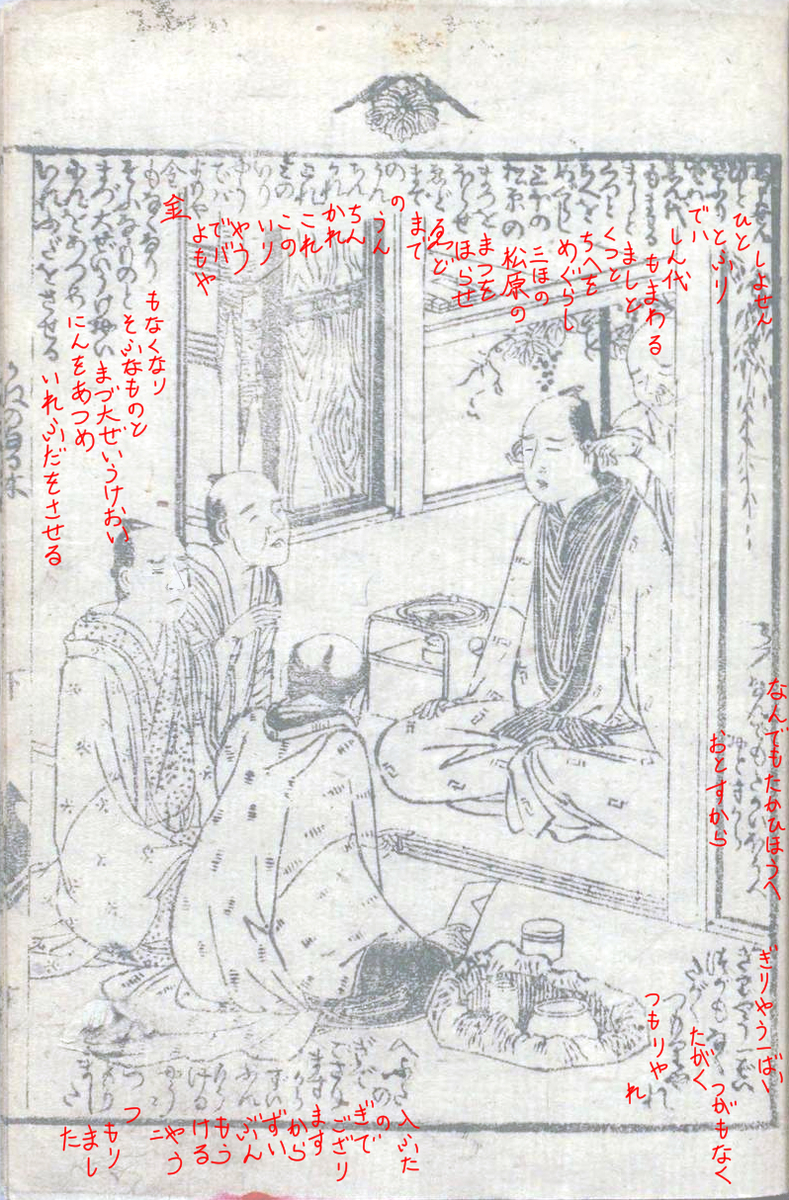 しよせん
ひと
とふり
でハ
しん代
もまわる
ましと
くつと
ちへを
めぐらし
三ほの
松原の
まつを
ほらせ
ゑど
まで
の
うん
ちん
かれ
これ
この
いり
やう
でバ
よもや
金
もなくなり
そふなものと
まづ大ぜいうけおい
にんをあつめ
いれふだをさせる
なんでもたかひほうへ
おとすから
ぎりやう一ばい
つがもなく
たがく
つもりやれ
入ふた
の
ぎで
ござり
ます
から
ずい
ぶん
もう
ける
やう
ニ
つ
もり
まし
た